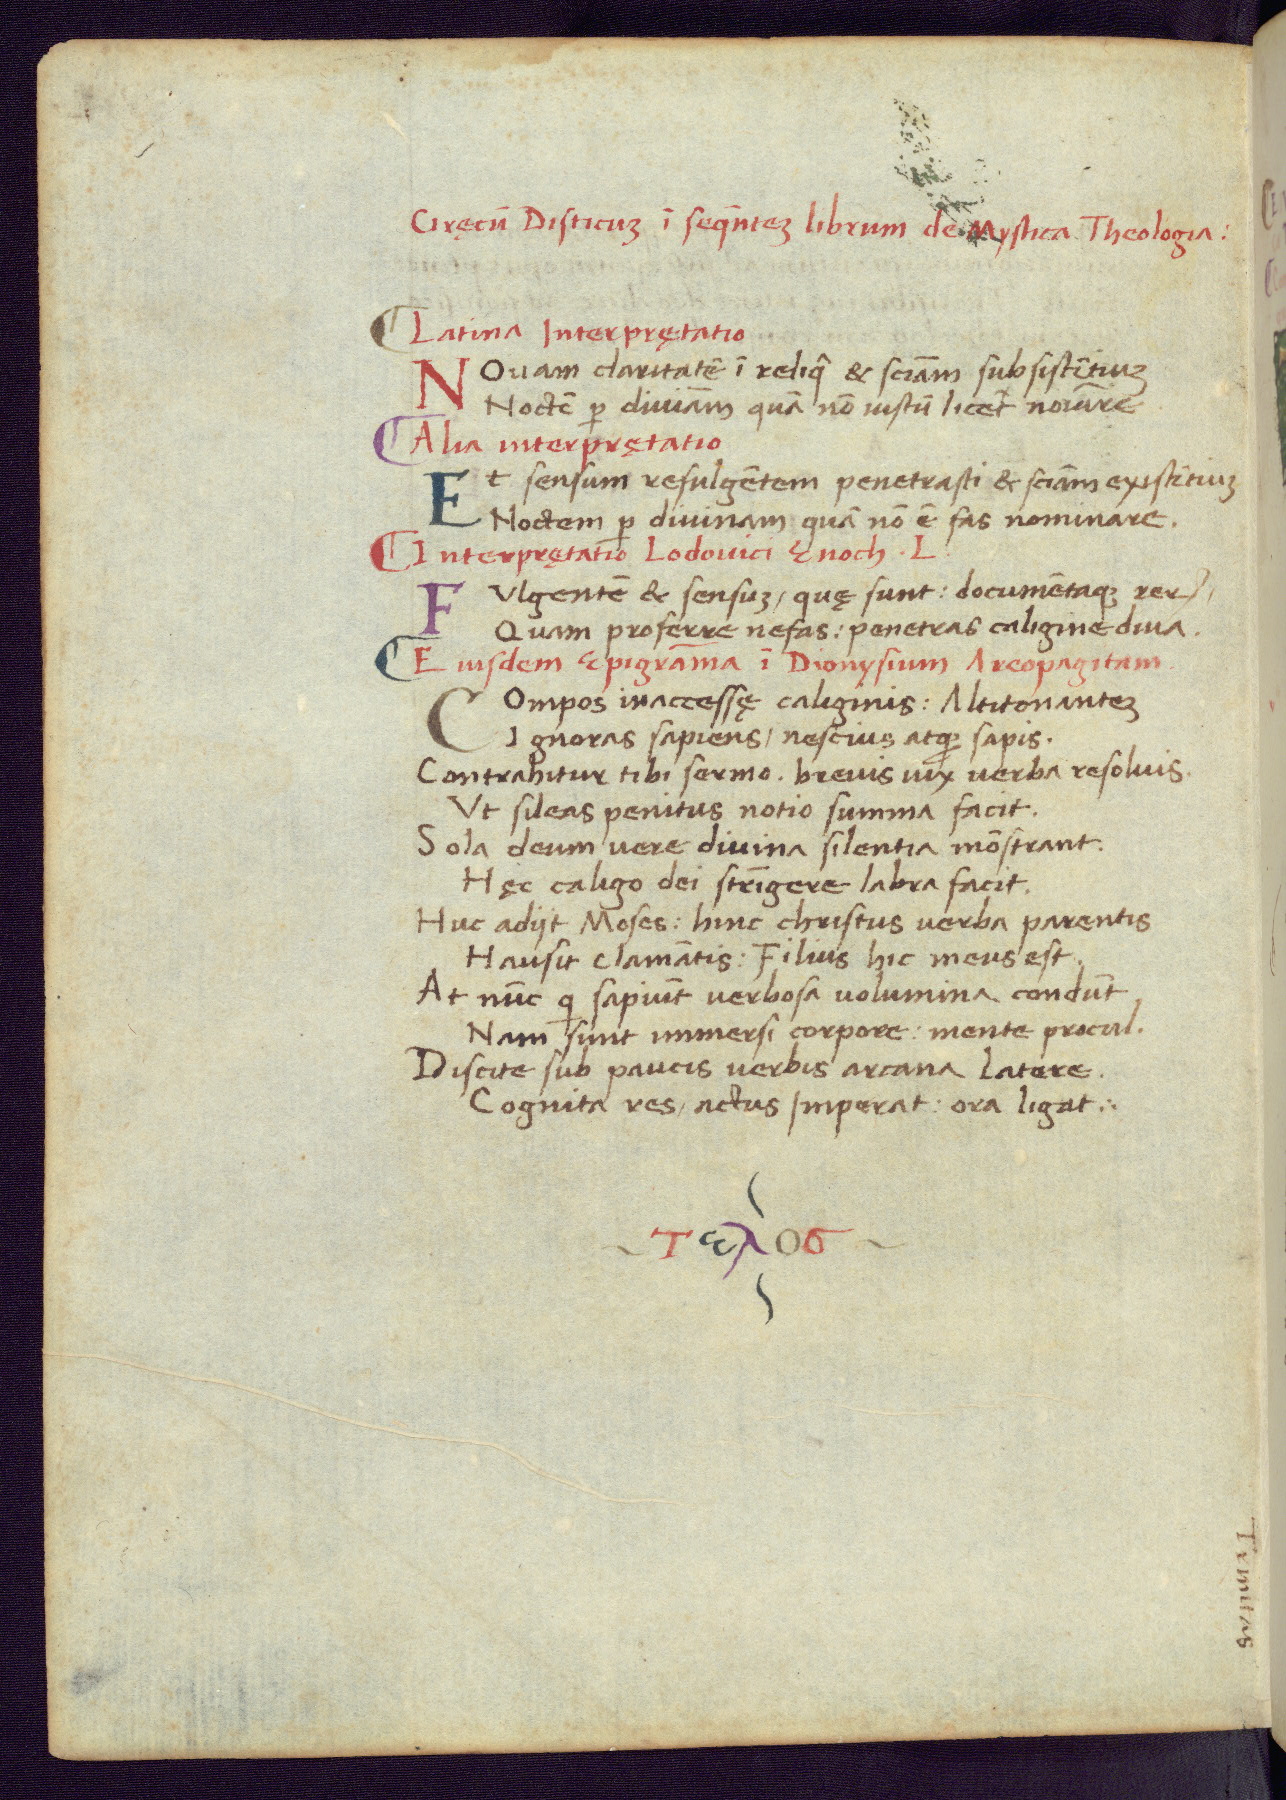 Gręcū Disticuꝫ ī seqn̄teꝫ librum de Mystica Theologia:
Latina Interprętatio
NOuam claritatē ī reliq̂ & sciām subsistētiuꝫ
Noctē ꝑ diuiām quā nō iustū licet noiāre
Alia interprętatio
Et sensum refulgētem penetrasti & sciām exsistētiuꝫ
Noctem ꝑ divinam quā nō ē fas nominare.
Interprętatio Lodovici Enoch . L
FVlgentē & sensuꝫ, quę sunt: documētaqꝫ rerꝝ,
Quam proferre nefas: penetras caligine diua.
Eiusdem Epigrām̄a ī Dionysium Areopagitam
COmpos inaccessę caliginis: Altitonanteꝫ
Ignoras sapiens, nescius atqꝫ sapis.
Contrahitur tibi sermo. brevis uix verba resoluis.
Vt sileas penitus notio summa facit.
Sola deum vere divina silentia mōstrant.
Hęc caligo dei strīgere labra facit.
Huc adijt Moses: hinc christus verba parentis
Hausit clamātis: Filius hic meus est.
At nūc q sapiūt verbosa volumina condūt
Nam sunt immersi corpore: mente procul.
Discite sub paucis verbis arcana latere.
Cognita res, actus Imperat: ora ligat.
~ Τελοσ ~
Trinitas